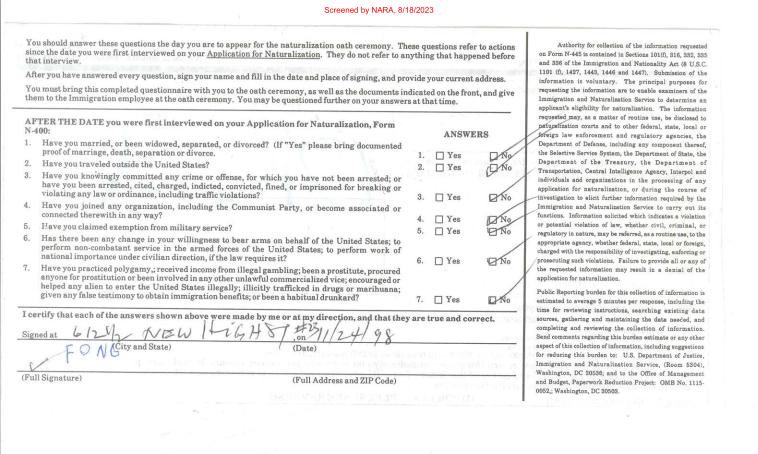 Screened by NARA, 8/18/2023
You should answer these questions the day you are to appear for the naturalization oath ceremony. These questions refer to actions
since the date you were first interviewed on your Application for Naturalization. They do not refer to anything that happened before
that interview.
After you have answered every question, sign your name and fill in the date and place of signing, and provide your current address.
You must bring this completed questionnaire with you to the oath ceremony, as well as the documents indicated on the front, and give
them to the Immigration employee at the oath ceremony. You may be questioned further on your answers at that time.
AFTER THE DATE you were first interviewed on your Application for Naturalization, Form
N-400:
ANSWERS
1. Have you married, or been widowed, separated, or divorced? (If "Yes" please bring documented
proof of marriage, death, separation or divorce.
1. Yes No
2. Have you traveled outside the United States?
2. Yes No
3. Have you knowingly committed any crime or offense, for which you have not been arrested; or
have you been arrested, cited, charged, indicted, convicted, fined, or imprisoned for breaking or
violating any law or ordinance, including traffic violations?
3. Yes No
4. Have you joined any organization, including the Communist Party, or become associated or
connected therewith in any way?
4. Yes No
5. Have you claimed exemption from military service?
5. Yes No
6. Has there been any change in your willingness to bear arms on behalf of the United States; to
perform non-combatant service in the armed forces of the United States; to perform work of
national importance under civilian direction, if the law requires it?
6. Yes No
7. Have you practiced polygamy; received income from illegal gambling; been a prostitute, procured
anyone for prostitution or been involved in any other unlawful commercialized vice; encouraged or
helped any alien to enter the United States illegally; illicitly trafficked in drugs or marihuana;
given any false testimony to obtain immigration benefits; or been a habitual drunkard?
7. Yes No
I certify that each of the answers shown above were made by me or at my direction, and that they are true and correct.
Signed at 612½ NEW HIGH ST #23, on 11/24/98
(City and State) (Date)
FONG
(Full Signature) (Full Address and ZIP Code)
Authority for collection of the information requested
on Form N-445 is contained in Sections 101(f), 316, 332, 335
and 336 of the Immigration and Nationality Act (8 U.S.C.
1101 (f), 1427, 1443, 1446 and 1447). Submission of the
information is voluntary. The principal purposes for
requesting the information are to enable examiners of the
Immigration and Naturalization Service to determine an
applicant's eligibility for naturalization. The information
requested may, as a matter of routine use, be disclosed to
naturalization courts and to other federal, state, local or
foreign law enforcement and regulatory agencies, the
Department of Defense, including any component thereof,
the Selective Service System, the Department of State, the
Department of the Treasury, the Department of
Transportation, Central Intelligence Agency, Interpol and
individuals and organizations in the processing of any
application for naturalization, or during the course of
investigation to elicit further information required by the
Immigration and Naturalization Service to carry out its
functions. Information solicited which indicates a violation
or potential violation of law, whether civil, criminal, or
regulatory in nature, may be referred, as a routine use, to the
appropriate agency, whether federal, state, local or foreign,
charged with the responsibility of investigating, enforcing or
prosecuting such violations. Failure to provide all or any of
the requested information may result in a denial of the
application for naturalization.
Public Reporting burden for this collection of information is
estimated to average 5 minutes per response, including the
time for reviewing instructions, searching existing data
sources, gathering and maintaining the data needed, and
completing and reviewing the collection of information.
Send comments regarding this burden estimate or any other
aspect of this collection of information, including suggestions
for reducing this burden to: U.S. Department of Justice,
Immigration and Naturalization Service, (Room 5304),
Washington, DC 20536; and to the Office of Management
and Budget, Paperwork Reduction Project: OMB No. 1115-
0052,; Washington, DC 20503.